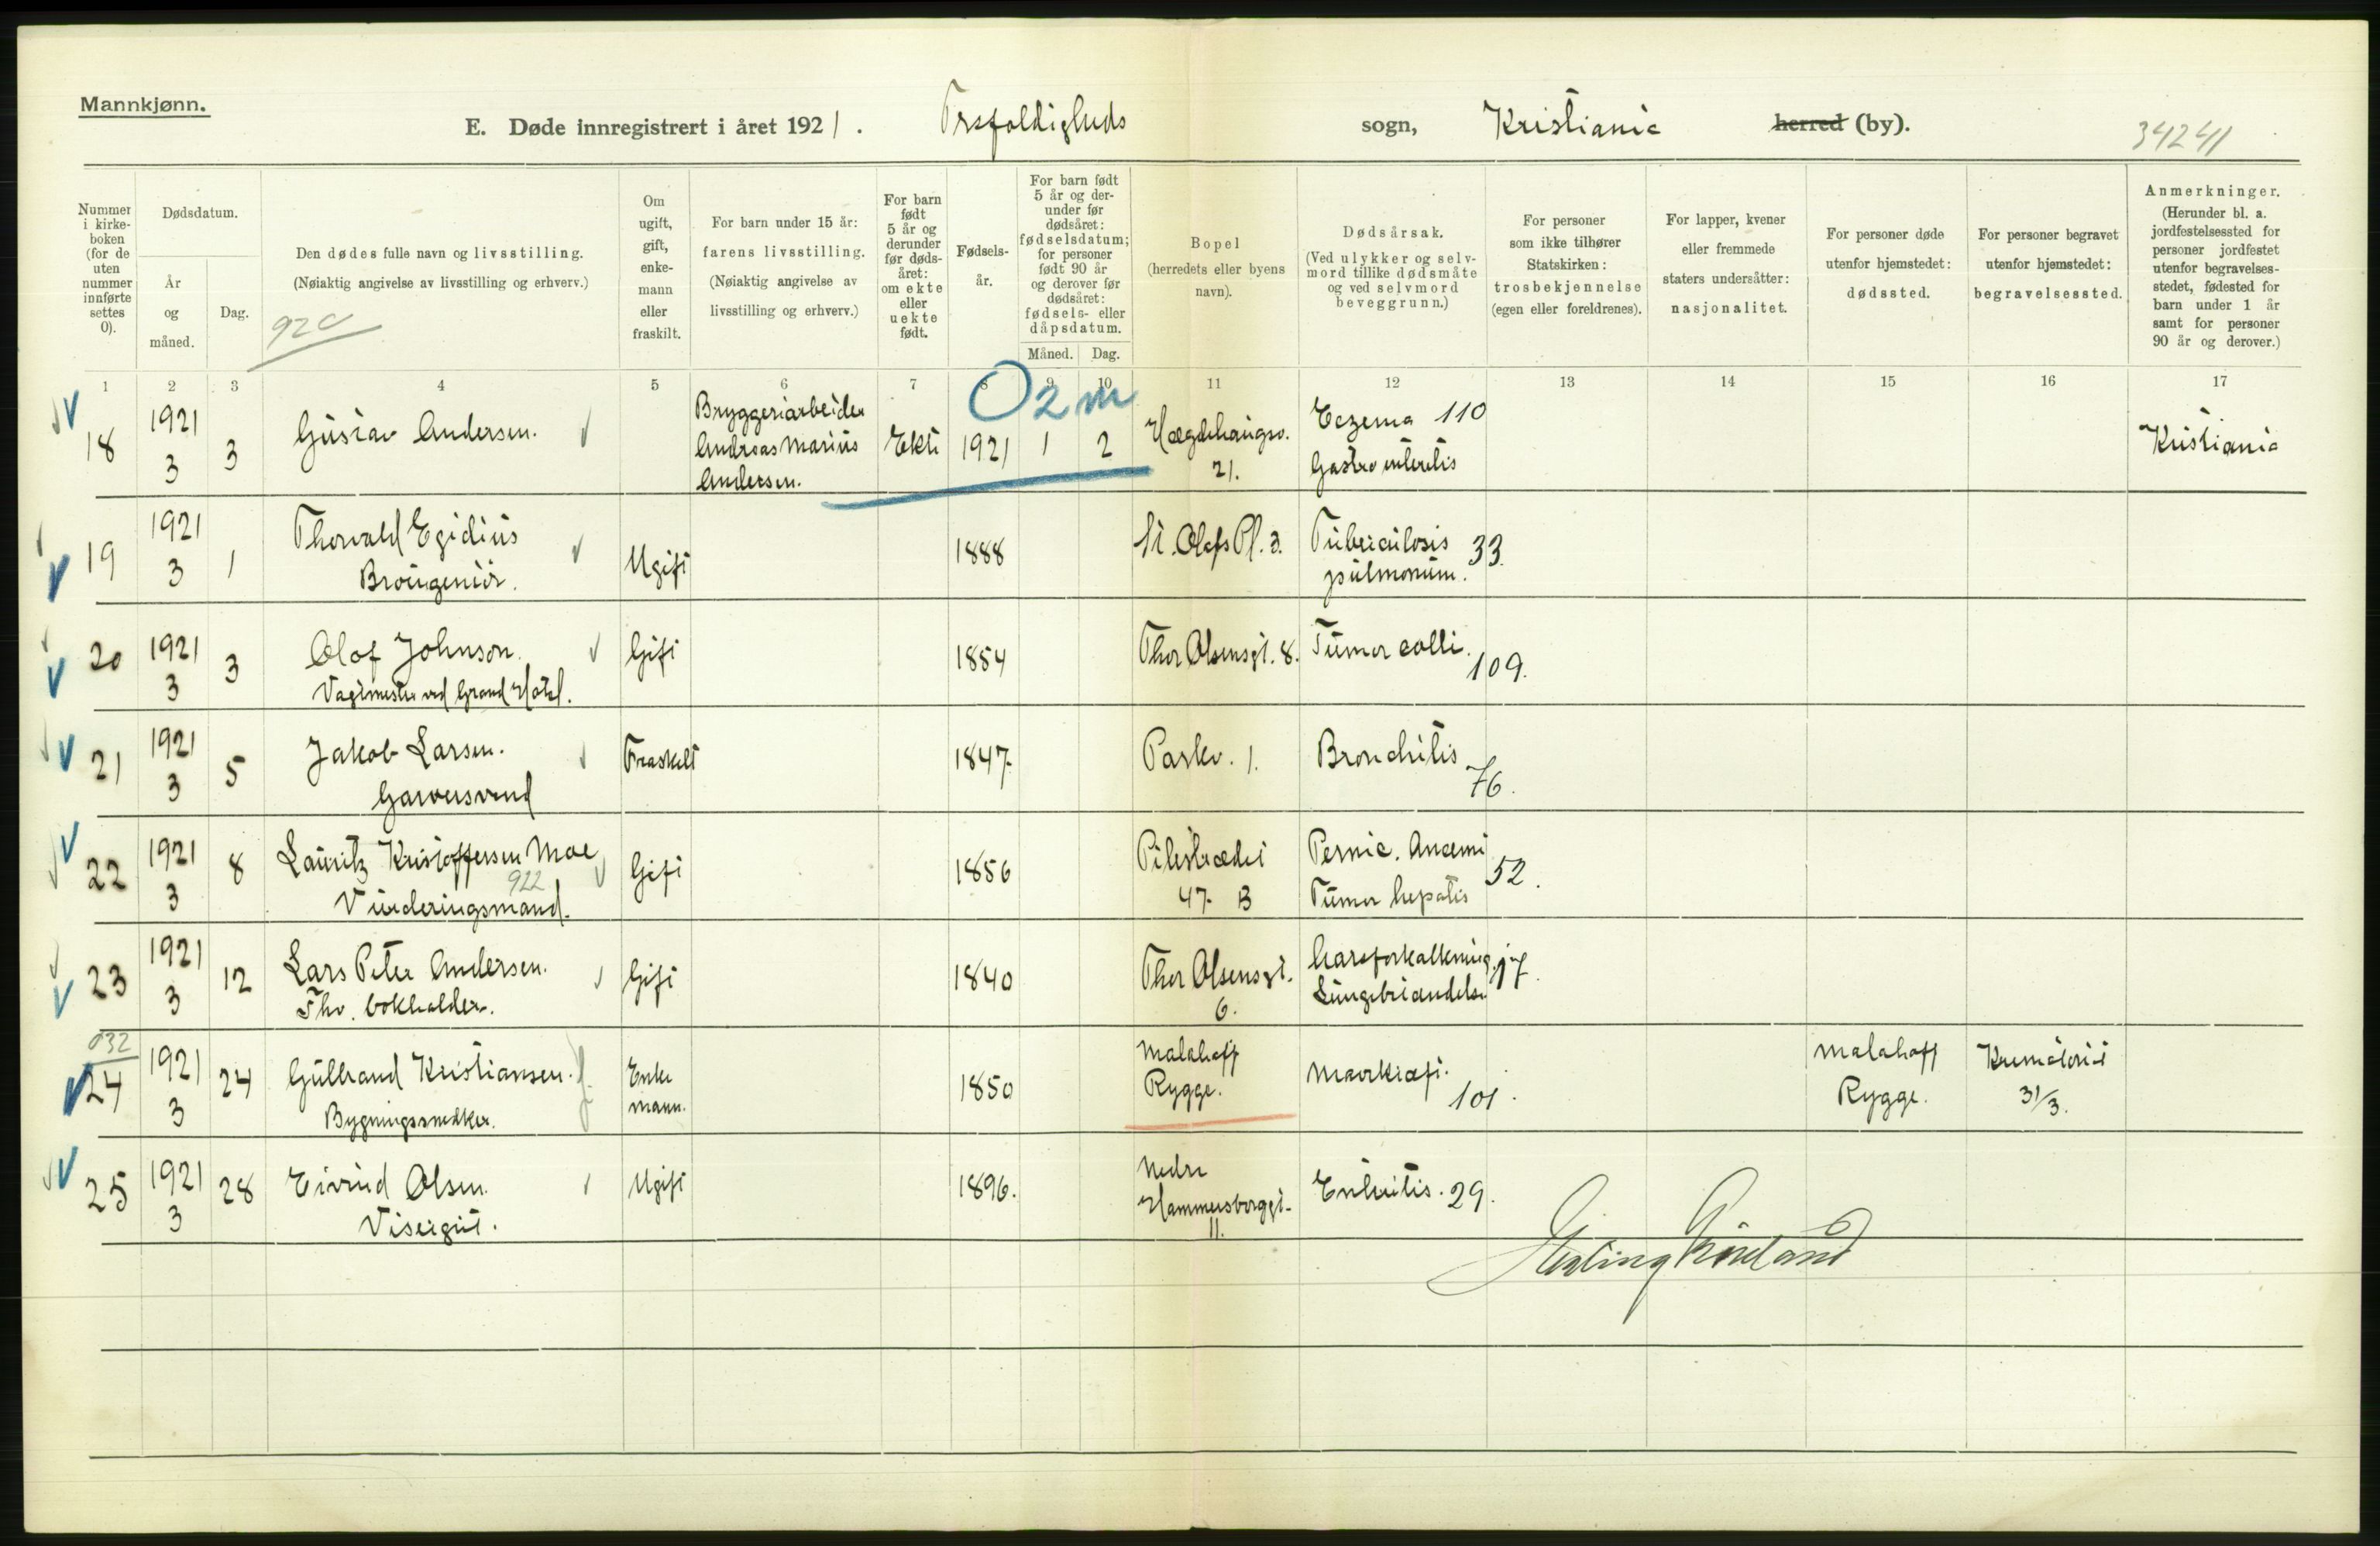 Mannkjønn.
E. Døde innregistrert i året 1921. Trefoldigheds sogn, Kristiania herred (by).
34241
Nummer i kirke-boken (for de uten nummer innførte settes 0).
Dødsdatum.
År og måned.
Dag.
Den dødes fulle navn og livsstilling.
(Nøiaktig angivelse av livsstilling og erhverv.)
920
Om ugift, gift, enke-mann eller fraskilt.
For barn under 15 år:
farens livsstilling.
(Nøiaktig angivelse av livsstilling og erhverv.)
For barn født 5 år og derunder før døds-året: om ekte eller uekte født.
Fødsels-år.
For barn født 5 år og der-under før dødsåret: fødselsdatum; for personer født 90 år og derover før dødsåret: fødsels- eller dåpsdatum.
Måned. Dag.
Bopel
(herredets eller byens navn).
Dødsårsak.
(Ved ulykker og selv-mord tillike dødsmåte og ved selvmord beveggrunn.)
For personer som ikke tilhører Statskirken:
trosbekjennelse
(egen eller foreldrenes).
For lapper, kvener eller fremmede staters undersåtter:
nasjonalitet.
For personer døde utenfor hjemstedet:
dødssted.
For personer begravet utenfor hjemstedet:
begravelsessted.
Anmerkninger.
(Herunder bl. a. jordfestelsessted for personer jordfestet utenfor begravelses-stedet, fødested for barn under 1 år samt for personer 90 år og derover.)
1 2 3 4 5 6 7 8 9 10 11 12 13 14 15 16 17
0 2 m
18 1921 3 3 Gustav Andersen. Bryggeriarbeider Andreas Marius Andersen. Ekte 1921 1 2 Hægdehaugsv. 21. Eczema 110 Gastroenteritis Kristiania
19 1921 3 1 Thorvald Egidius Ugift 1888 St. Olafs Pl. 3. Tuberculosis pulmonum. 33.
20 1921 3 3 Olof Johnson. Vagtmester ved Grand Hotel. Gift 1854 Thor Olsensgt. 8. Tumor colli. 109.
21 1921 3 5 Jakob Larsen. Garversvend Fraskilt 1847. Parkv. 1. Bronchitis 76.
22 1921 3 8 Lauritz Kristoffersen Moe 922 Vurderingsmand. Gift 1856 Pilestrædet 47 B Pernic. Anæmi Tumor hepatis 52.
23 1921 3 12 Lars Peter Andersen. Fhv. bokholder. Gift 1840 Thor Olsensgt. 6. Aareforkalkning. Lungebetændelse 17.
032
24 1921 3 24 Gulbrand Kristiansen. Bygningssnedker. Enkemann. 1850 Malahoff Rygge. Mavekræft. 101. Malahoff Rygge. Krematoriet 31/3.
25 1921 3 28 Eivind Olsen. Visergut. Ugift 1896. Nedre Hammersborggt. 11. Enteritis. 29.